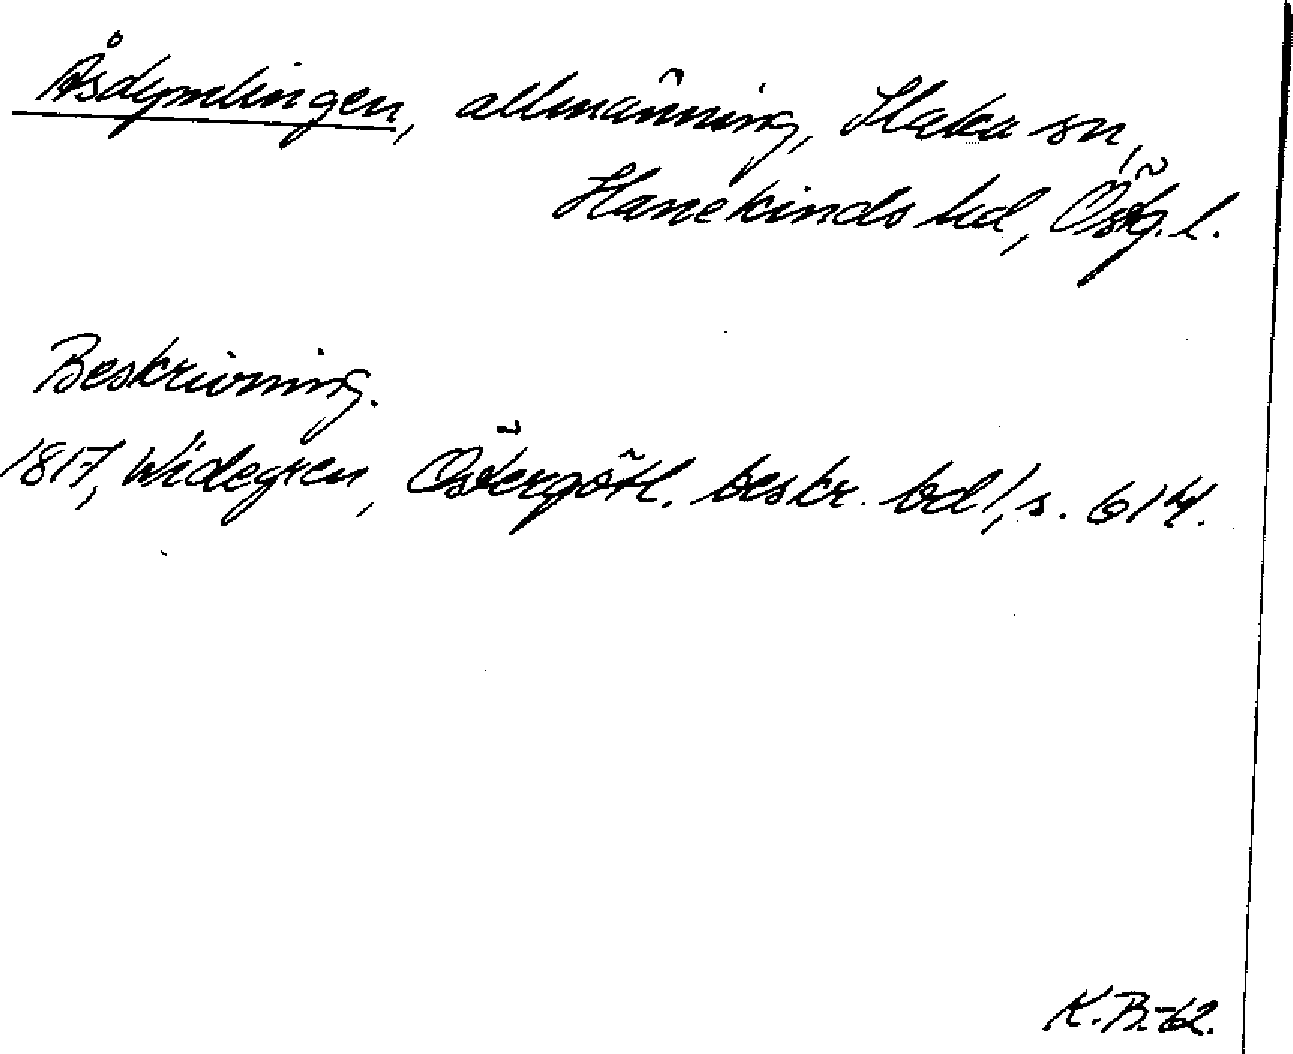 Åsdymlingen, allmänning, Slaka sn,
Hanekinds hd, Östg. l.
Beskrivning.
1817, Widegren, Östergötl. beskr. bd 1, s. 614.
K.B.-62.